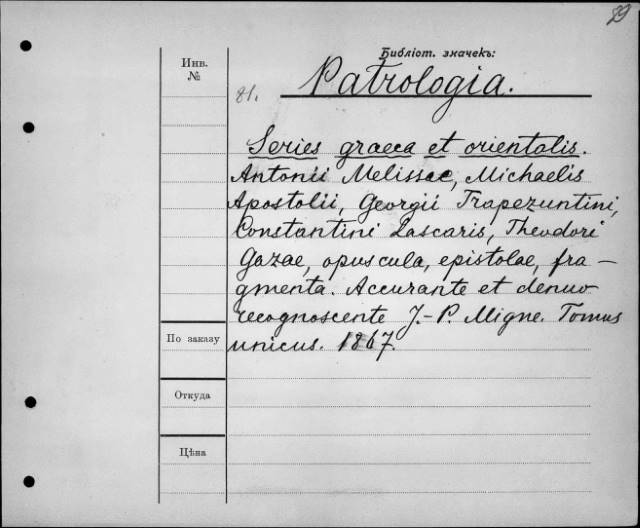 89
Библіот. значекъ:
Инв.
№
81.
Patrologia.
Series graeca et orientalis.
Antonii Melissae, Michaelis
Apostolii, Georgii Trapezuntini,
Constantini Lascaris, Theodori
Gazae, opuscula, epistolae, fra-
gmenta. Accurante et denuo
recognoscente J.-P. Migne. Tomus
unicus. 1867.
По заказу
Откуда
Цѣна